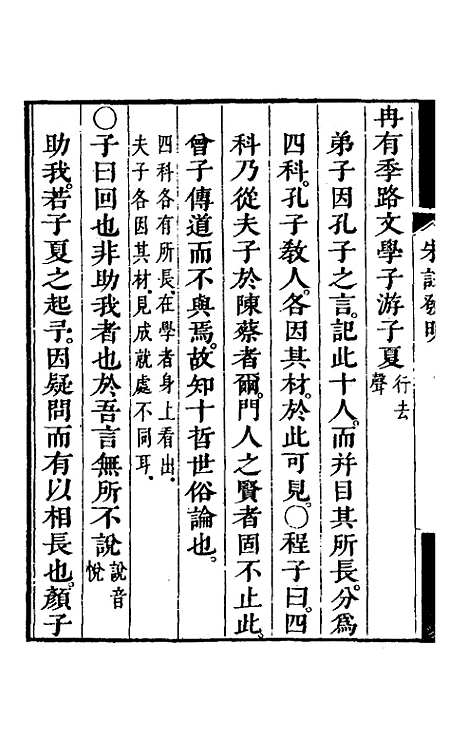 朱註發明
冉有季路文學子游子夏行去聲
弟子因孔子之言。記此十人。而并目其所長。分為
四科。孔子教人。各因其材。於此可見。〇程子曰。四
科乃從夫子於陳蔡者爾。門人之賢者固不止此。
曾子傳道而不與焉。故知十哲世俗論也。
四科各有所長。在學者身上看出。
夫子各因其材。見成就處不同耳。
〇子曰回也非助我者也於吾言無所不說說音悅
助我。若子夏之起予。因疑問而有以相長也。顏子